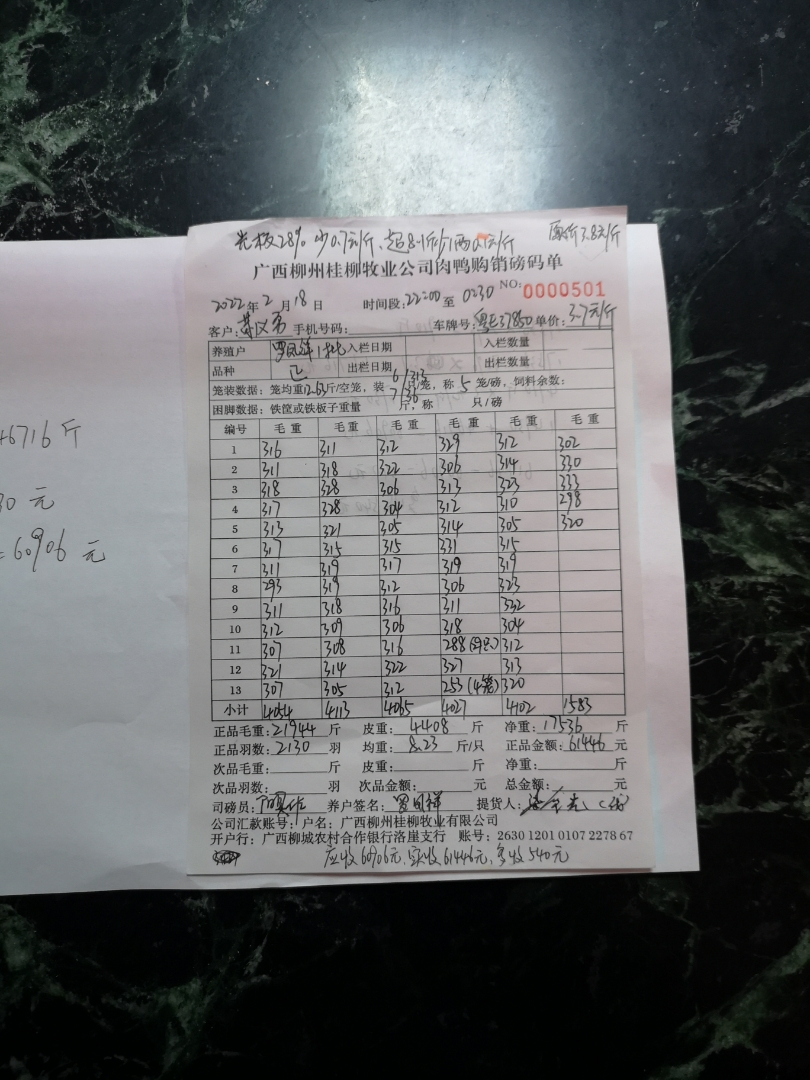 46716斤
30元
=60906元
光板28% 少0.7元/斤、超8.1斤 原价3.8元/斤
广西柳州桂柳牧业公司肉鸭购销磅码单
2022年2月18日 时间段:22:00至0230 NO:0000501
客户: 手机号码: 车牌号:粤E37850 单价:3.7元/斤
养殖户 入栏日期 入栏数量
品种 出栏日期 出栏数量
笼装数据:笼均重12.63斤/空笼,装6/313 7/36只/笼,称5笼/磅,饲料余数:
困脚数据:铁筐或铁板子重量 斤,称 只/磅
编号 毛重 毛重 毛重 毛重 毛重 毛重
1 316 311 312 329 312 302
2 311 318 322 306 314 330
3 318 328 306 313 323 333
4 317 328 304 312 310 298
5 313 321 305 314 305 320
6 317 315 315 331 315
7 311 319 317 319 319
8 293 319 312 306 323
9 311 318 316 311 332
10 312 309 306 318 304
11 307 308 316 288 312
12 321 314 322 327 313
13 307 305 312 253(4笼) 320
小计 4054 4113 4065 4027 4102 1583
正品毛重:21944斤 皮重:4408斤 净重:17536斤
正品羽数:2130羽 均重:8.23斤/只 正品金额:61446元
次品毛重: 斤 皮重: 斤 净重: 斤
次品羽数: 羽 次品金额: 元 总金额: 元
司磅员: 养户签名: 提货人:
公司汇款账号:户名:广西柳州桂柳牧业有限公司
开户行:广西柳城农村合作银行洛崖支行 账号:2630 1201 0107 2278 67
应收60906元,实收61446元,多收540元